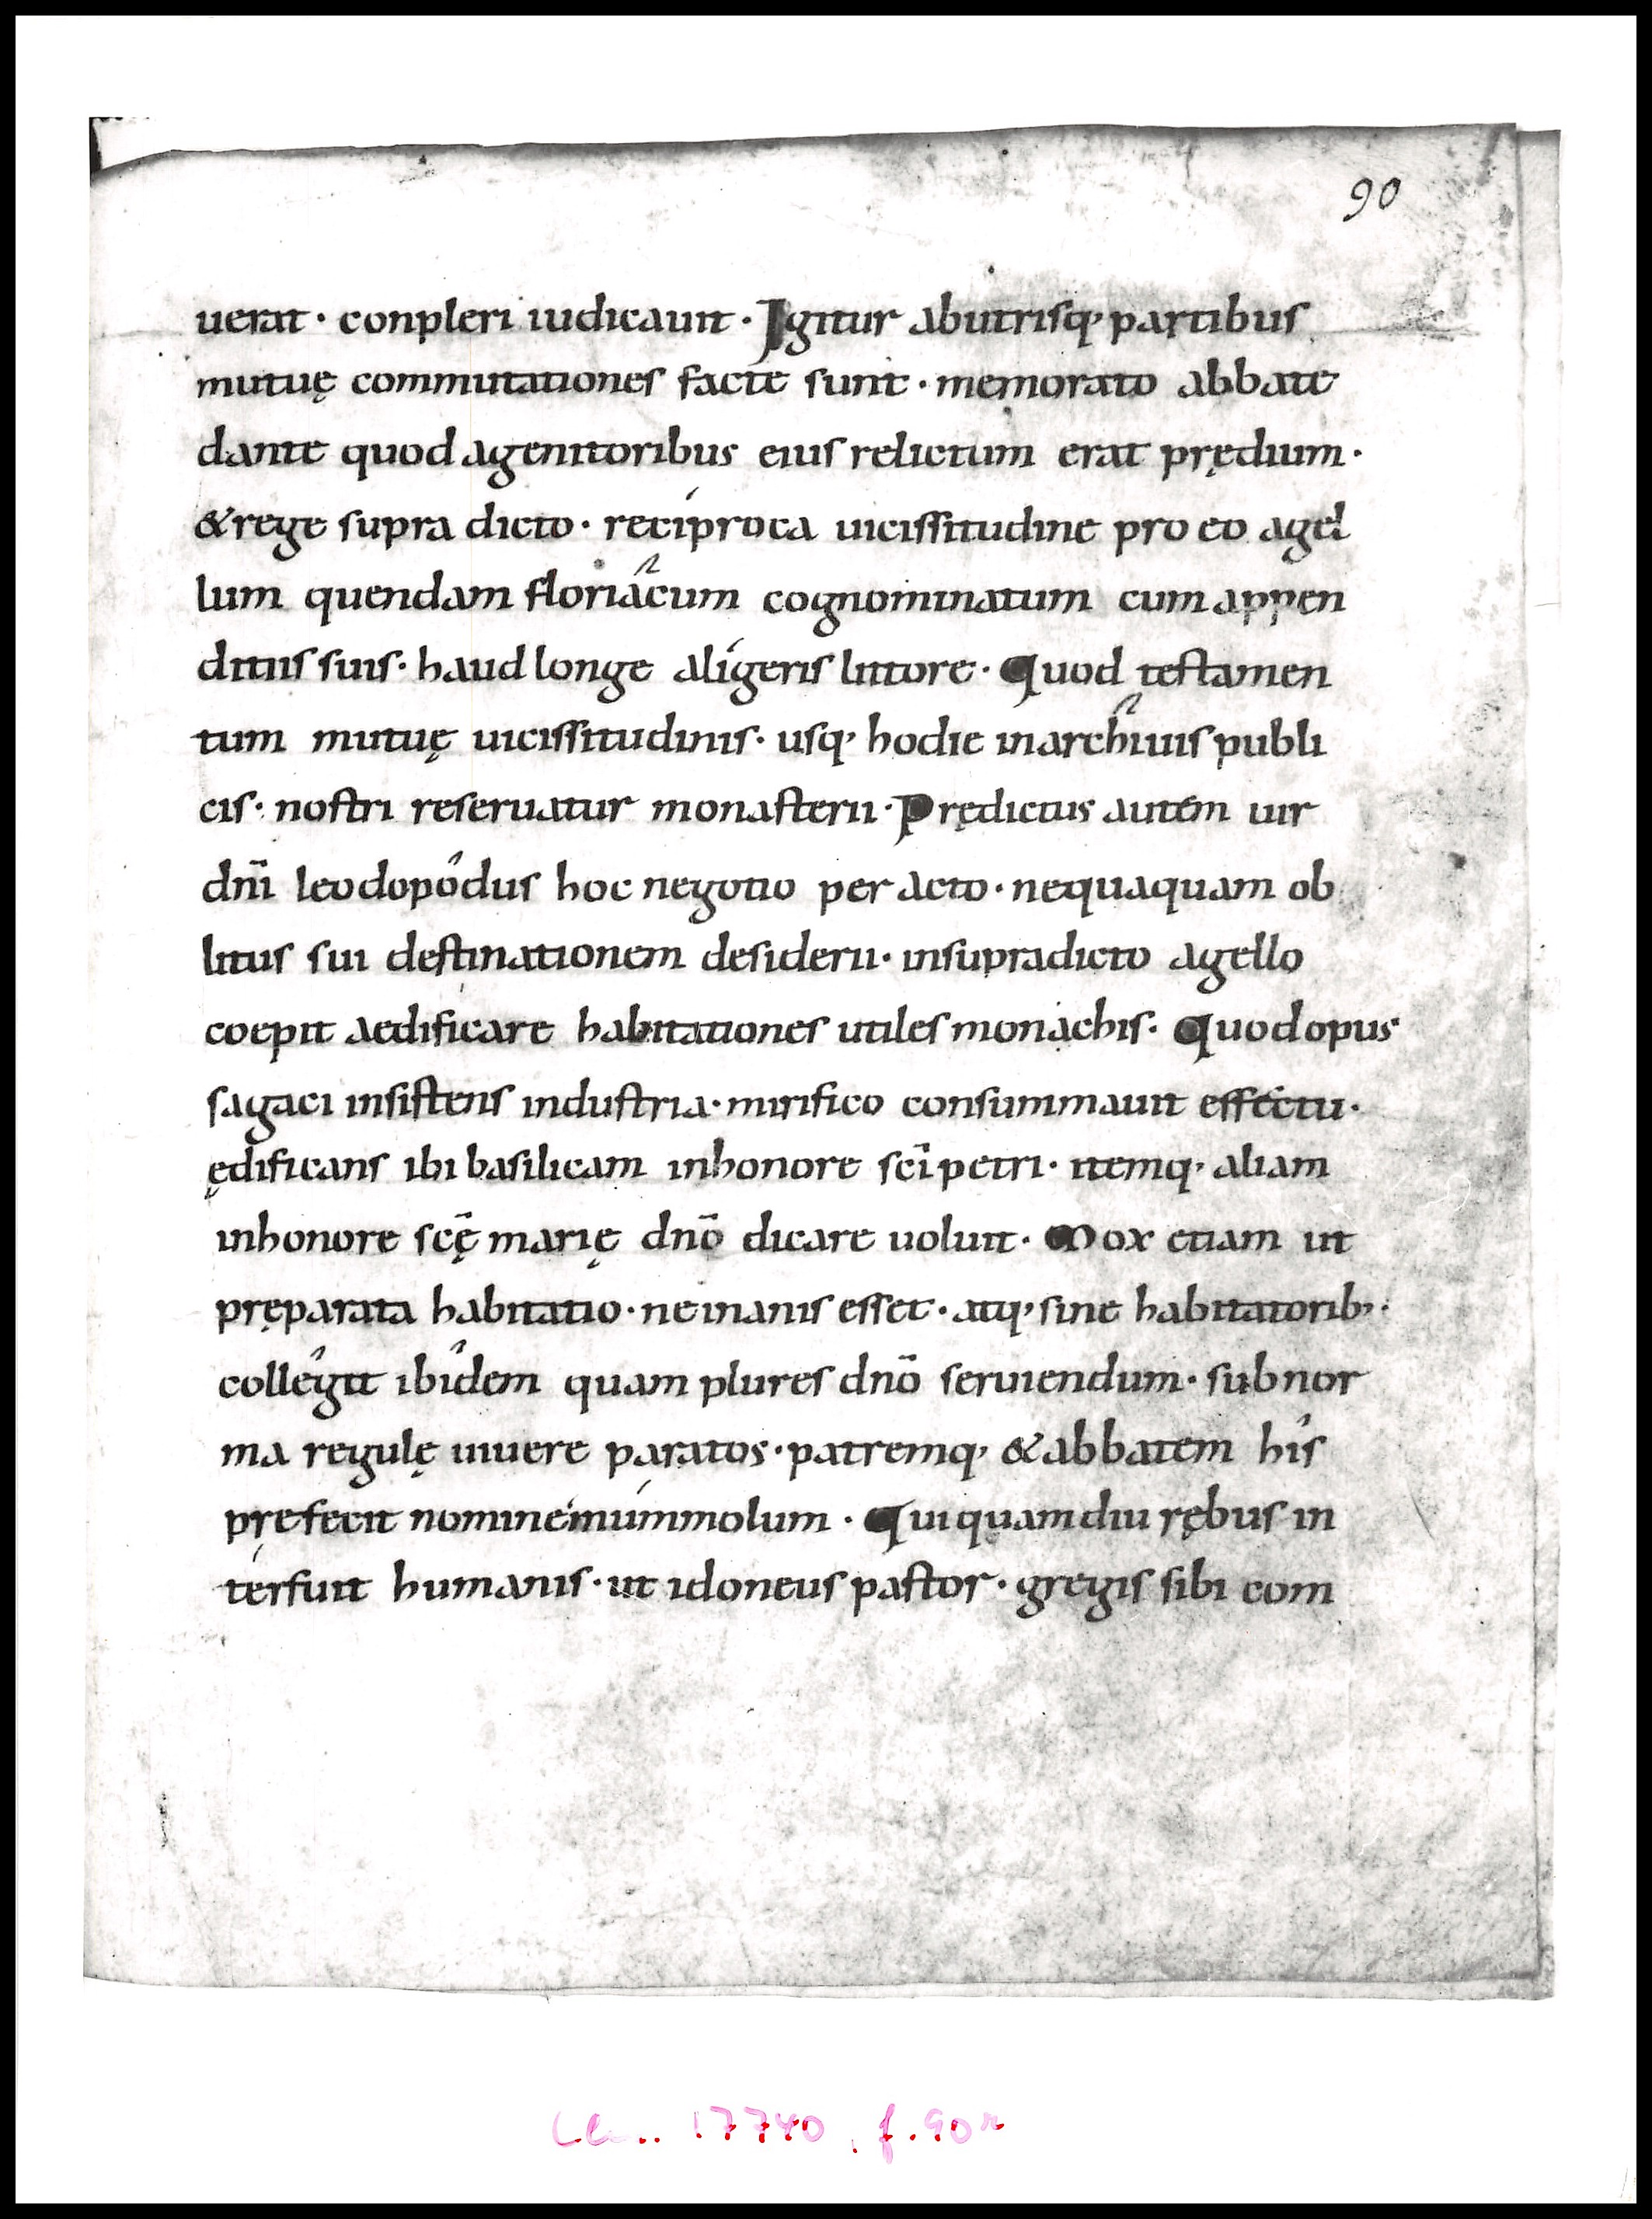 90
uerat · conpleri iudicauit · Igitur abutrisq; partibus
mutuę commutationes facte sunt · memorato abbate
dante quod agenitoribus eius relictum erat prędium ·
& rege supra dicto · recíproca uicissitudine pro eo agel
lum quendam floriâcum cognominatum cum appen
ditiis suis · haud longe alígeris littore · Quod testamen
tum mutuę uicissitudinis · usq; hodie inarchîuis publi
cis · nostri reseruatur monasterii · Prędictus autem uir
dnī leodopôdus hoc negotio per acto · nequaquam ob
litus sui destinationem desiderii · insupradicto agello
coepit aedificare habitationes utiles monachis · Quodopus
sagaci insistens industria · mirifico consummauit effectu ·
ędificans ibi basilicam inhonore scī petri · itemq; aliam
inhonore scę̄ marię dnō dicare uoluit · Mox etiam ut
pręparata habitatio · neinanis esset · atq; sine habitatorib; ·
collêgit ibîdem quam plures dnō seruiendum · subnor
ma regulę uiuere paratos · patremq; & abbatem hîs
pręfecit nominemúmmolum · Qui quamdiu rębus in
térfuit humanis · ut idoneus pastor · gregis sibi com
17740, f. 90r